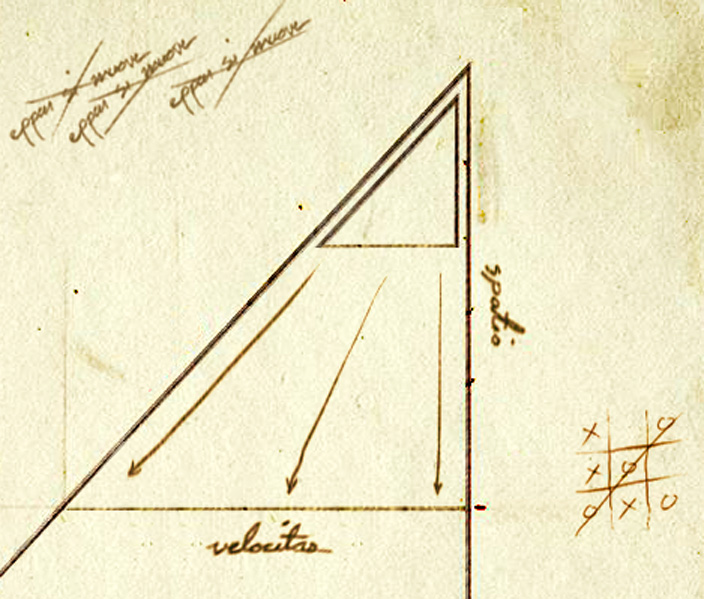 eppur si muove
eppur si muove
eppur si muove
spatio
velocitas
X O
X O
O X O